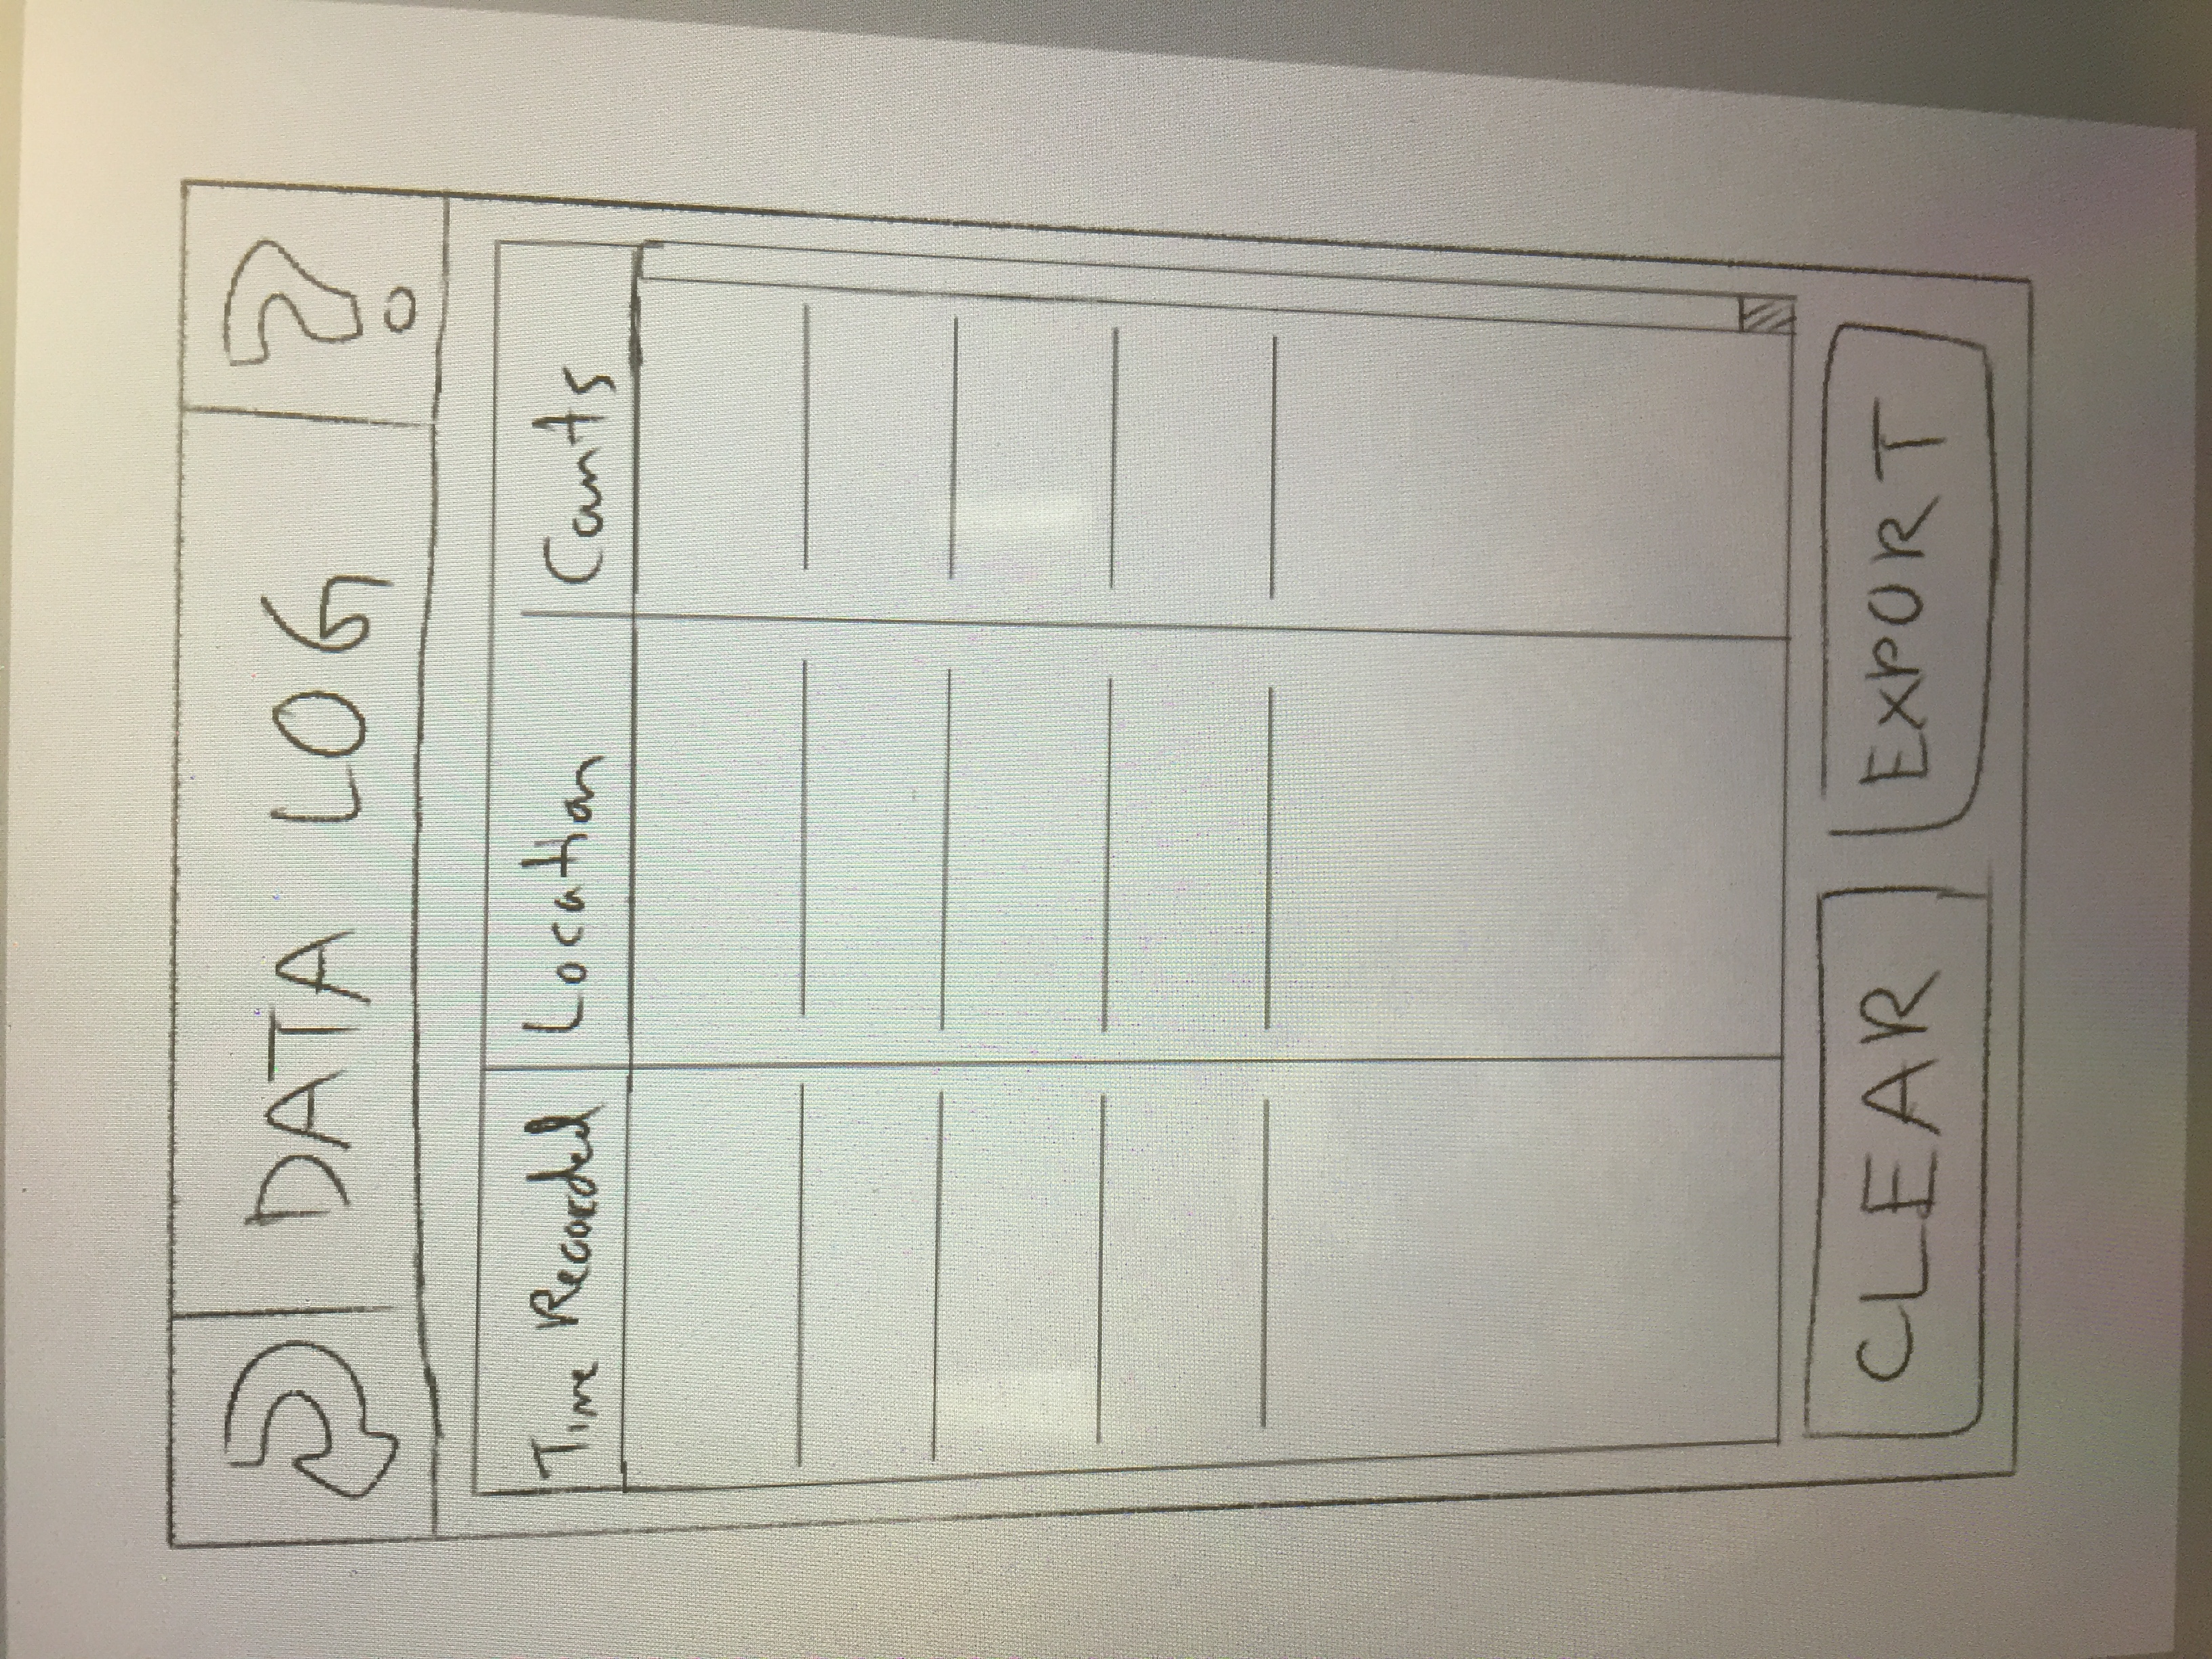 DATA LOG ?
Time Recorded Location Counts
CLEAR EXPORT